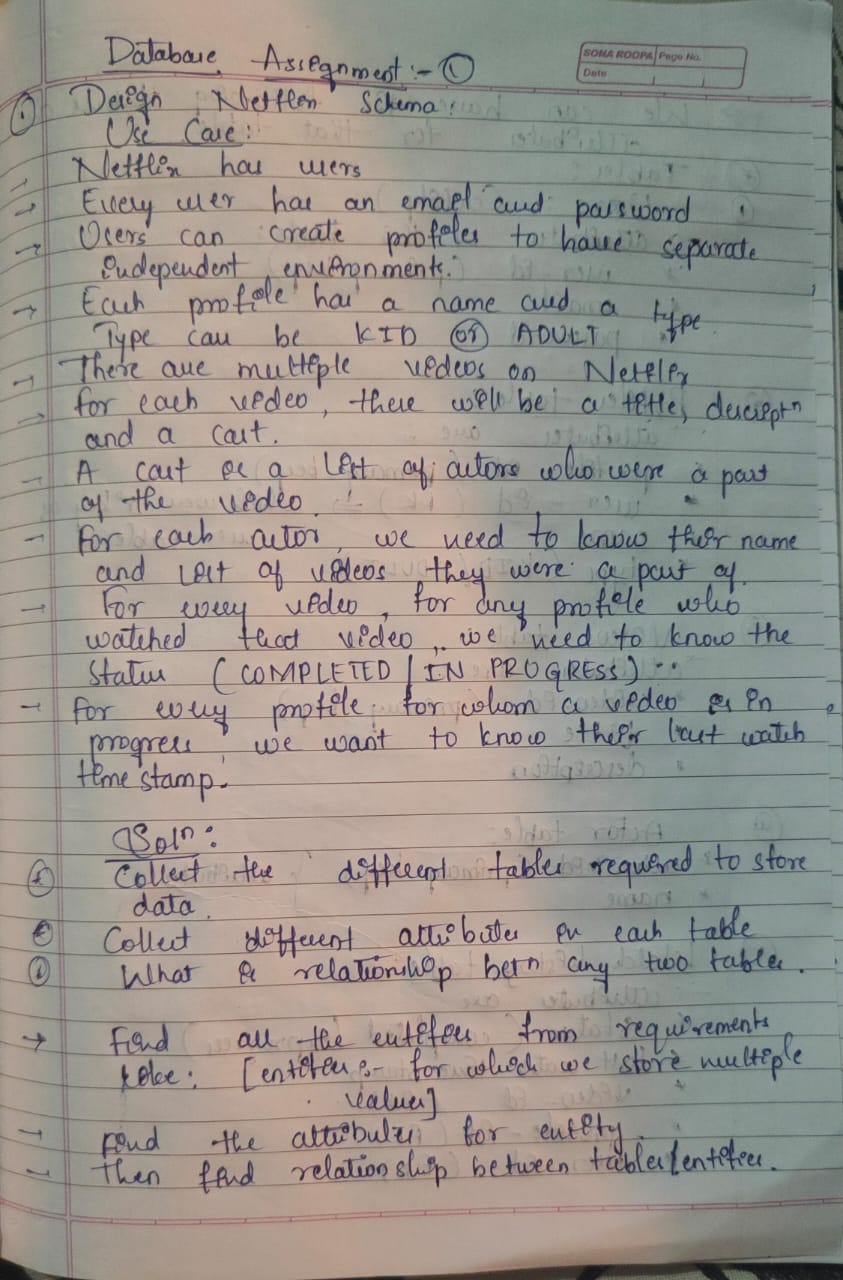 Database Assignment :- ①
SONA ROOPA Page No.
Date
① Design Netflix Schema :
Use Case :
→ Netflix has users
→ Every user has an email and password
→ Users can create profiles to have separate
independent environments.
→ Each profile has a name and a type.
Type can be KID or ADULT
→ There are multiple videos on Netflix
→ for each video, there will be a title, descriptn
and a cast.
→ A cast is a list of actors who were a part
of the video.
→ For each actor, we need to know their name
and list of videos they were a part of.
→ For every video, for any profile who
watched that video, we need to know the
status (COMPLETED / IN PROGRESS)..
→ for every profile for whom a video is in
progress, we want to know their last watch
time stamp.
Soln :
Collect the different tables required to store
data.
Collect different attributes in each table
What is relationship betn any two tables.
→ Find all the entities from requirements
like : [entities :- for which we store multiple
values]
→ Find the attributes for entity.
→ Then find relationship between tables/entities.